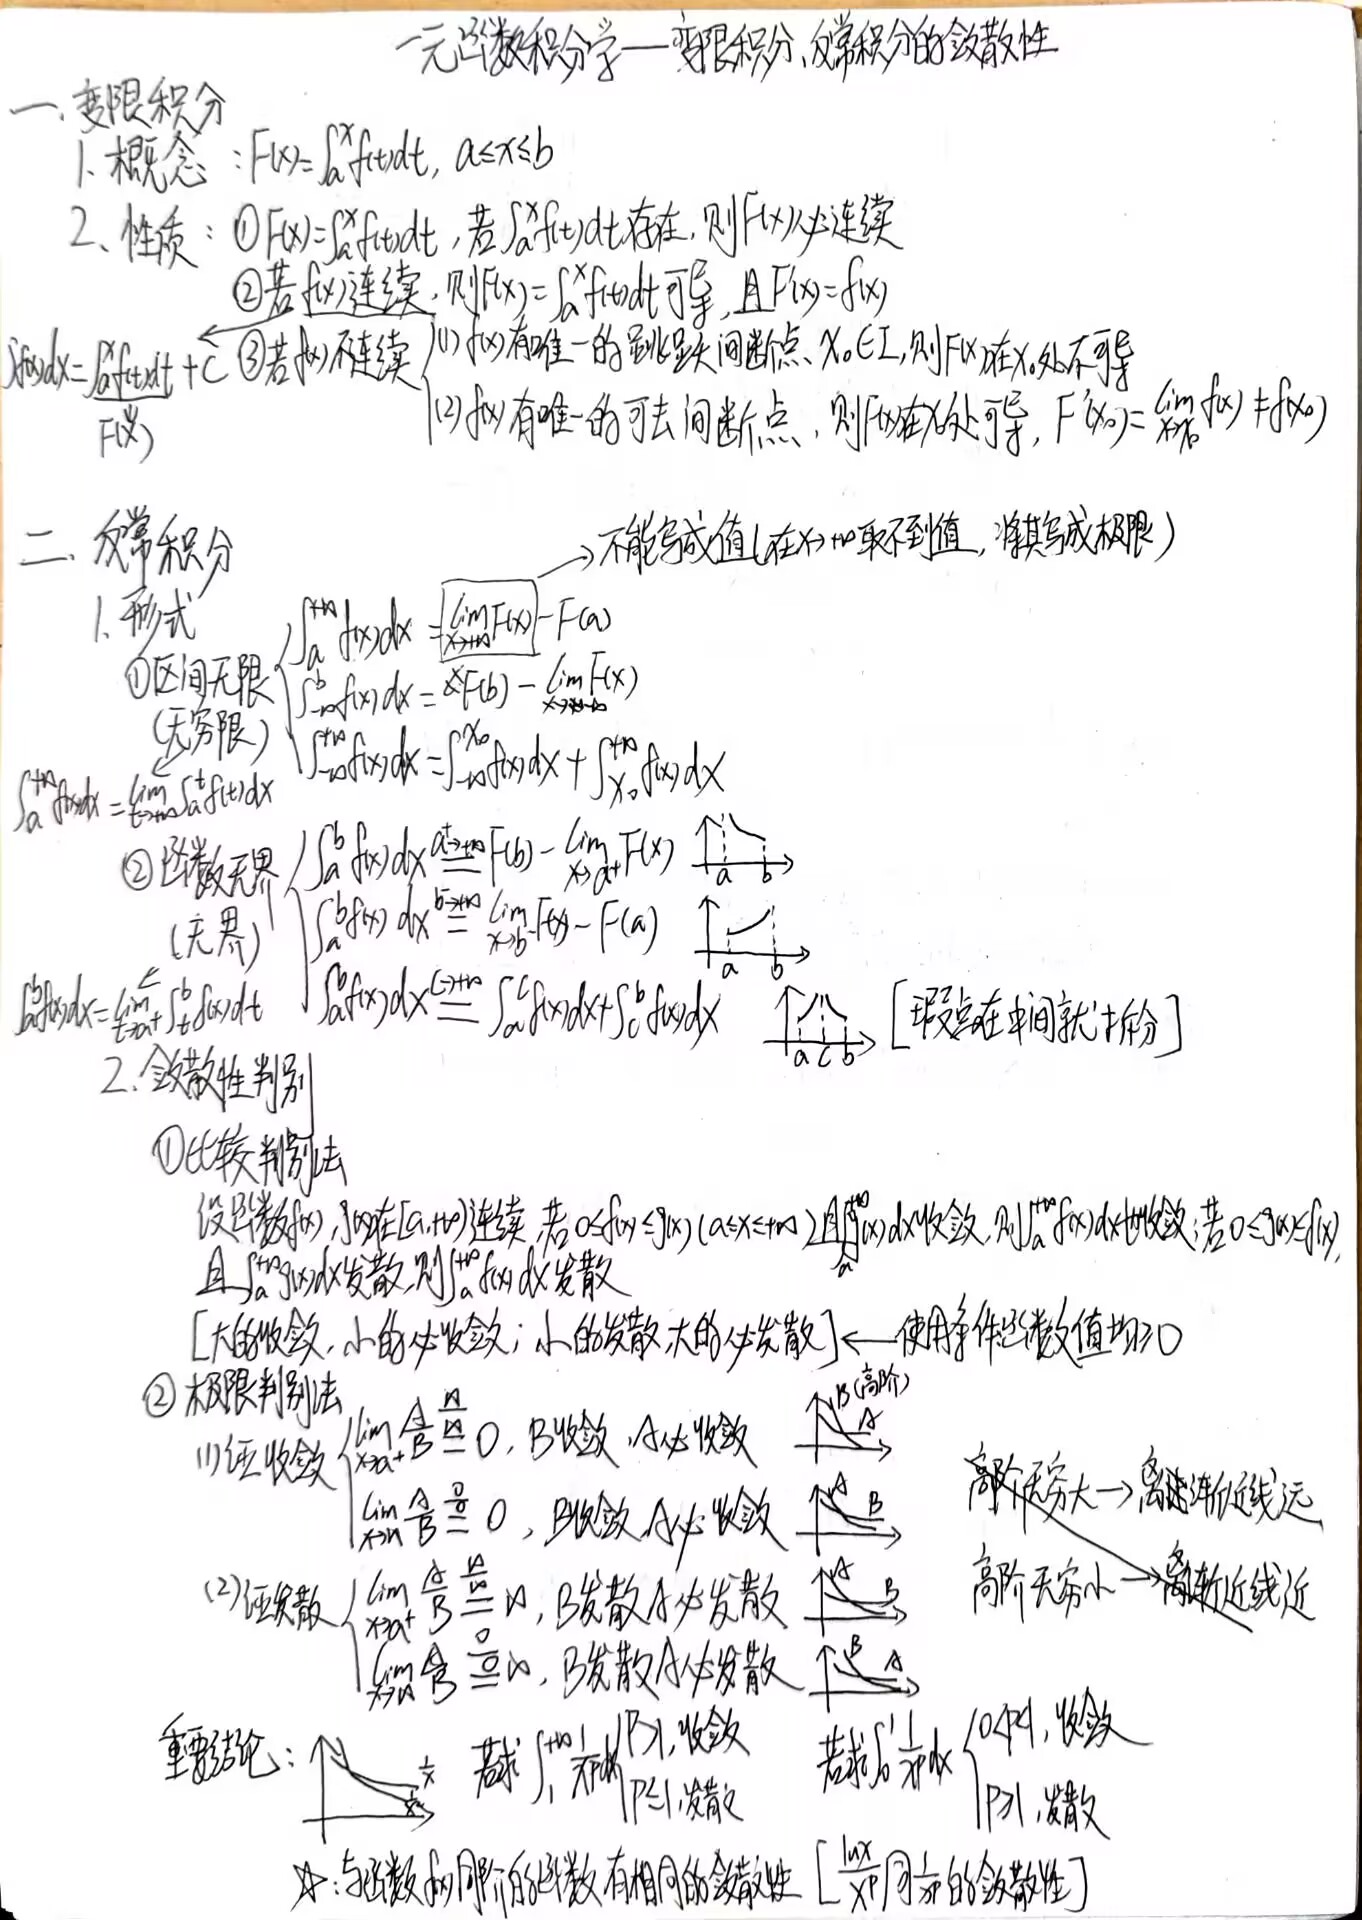 一元函数积分学——变限积分、反常积分的敛散性
一、变限积分
1、概念：F(x)=∫ₐˣf(t)dt, a≤x≤b
2、性质：①F(x)=∫ₐˣf(t)dt，若∫ₐˣf(t)dt存在，则F(x)必连续
②若f(x)连续，则F(x)=∫ₐˣf(t)dt可导，且F'(x)=f(x)
∫f(x)dx=∫ₐˣf(t)dt+C
F(x)
③若f(x)不连续
(1) f(x)有唯一的跳跃间断点、x₀∈I，则F(x)在x₀处不可导
(2) f(x)有唯一的可去间断点，则F(x)在x₀处可导，F'(x₀)=lim x→x₀ f(x)≠f(x₀)
二、反常积分
→不能写成值(在x→+∞取不到值，将其写成极限)
1、形式
①区间无限
(无穷限)
∫ₐ^{+∞} f(x)dx = lim x→+∞ F(x) - F(a)
∫_{-∞}^b f(x)dx = F(b) - lim x→-∞ F(x)
∫_{-∞}^{+∞} f(x)dx = ∫_{-∞}^{x₀} f(x)dx + ∫_{x₀}^{+∞} f(x)dx
∫ₐ^{+∞} f(x)dx = lim t→+∞ ∫ₐᵗ f(t)dx
②函数无界
(无界)
∫ₐᵇ f(x)dx =(a⁺→+∞)= F(b) - lim x→a⁺ F(x)
a b
∫ₐᵇ f(x)dx =(b⁻→+∞)= lim x→b⁻ F(x) - F(a)
a b
∫ₐᵇ f(x)dx =(c→+∞)= ∫ₐᶜ f(x)dx + ∫_cᵇ f(x)dx
a c b
[瑕点在中间就拆分]
∫ₐᵇ f(x)dx = lim t→a⁺ ∫ₜᵇ f(x)dt
2、敛散性判别
①比较判别法
设函数f(x), g(x)在[a,+∞)连续，若0≤f(x)≤g(x)(a≤x≤+∞)且∫ₐ^{+∞} g(x)dx收敛，则∫ₐ^{+∞} f(x)dx也收敛；若0≤g(x)≤f(x)，
且∫ₐ^{+∞} g(x)dx发散，则∫ₐ^{+∞} f(x)dx发散
[大的收敛，小的必收敛；小的发散，大的必发散]←使用条件函数值均≥0
②极限判别法
(1)证收敛
lim x→a⁺ A/B =(∞/∞)= 0，B收敛，A必收敛
B(高阶) A
lim x→∞ A/B =(0/0)= 0，B收敛，A必收敛
A B
高阶无穷大→离渐近线远
高阶无穷小→离渐近线近
(2)证发散
lim x→a⁺ A/B =(∞/∞)= ∞，B发散A必发散
A B
lim x→∞ A/B =(0/0)= ∞，B发散A必发散
B A
重要结论：
1/x
若求∫₁^{+∞} 1/xᵖ dx {P>1，收敛
P≤1，发散
若求∫₀¹ 1/xᵖ dx {0<P<1，收敛
P≥1，发散
☆：与函数f(x)同阶的函数有相同的敛散性 [lnx/xᵖ同1/xᵖ的敛散性]